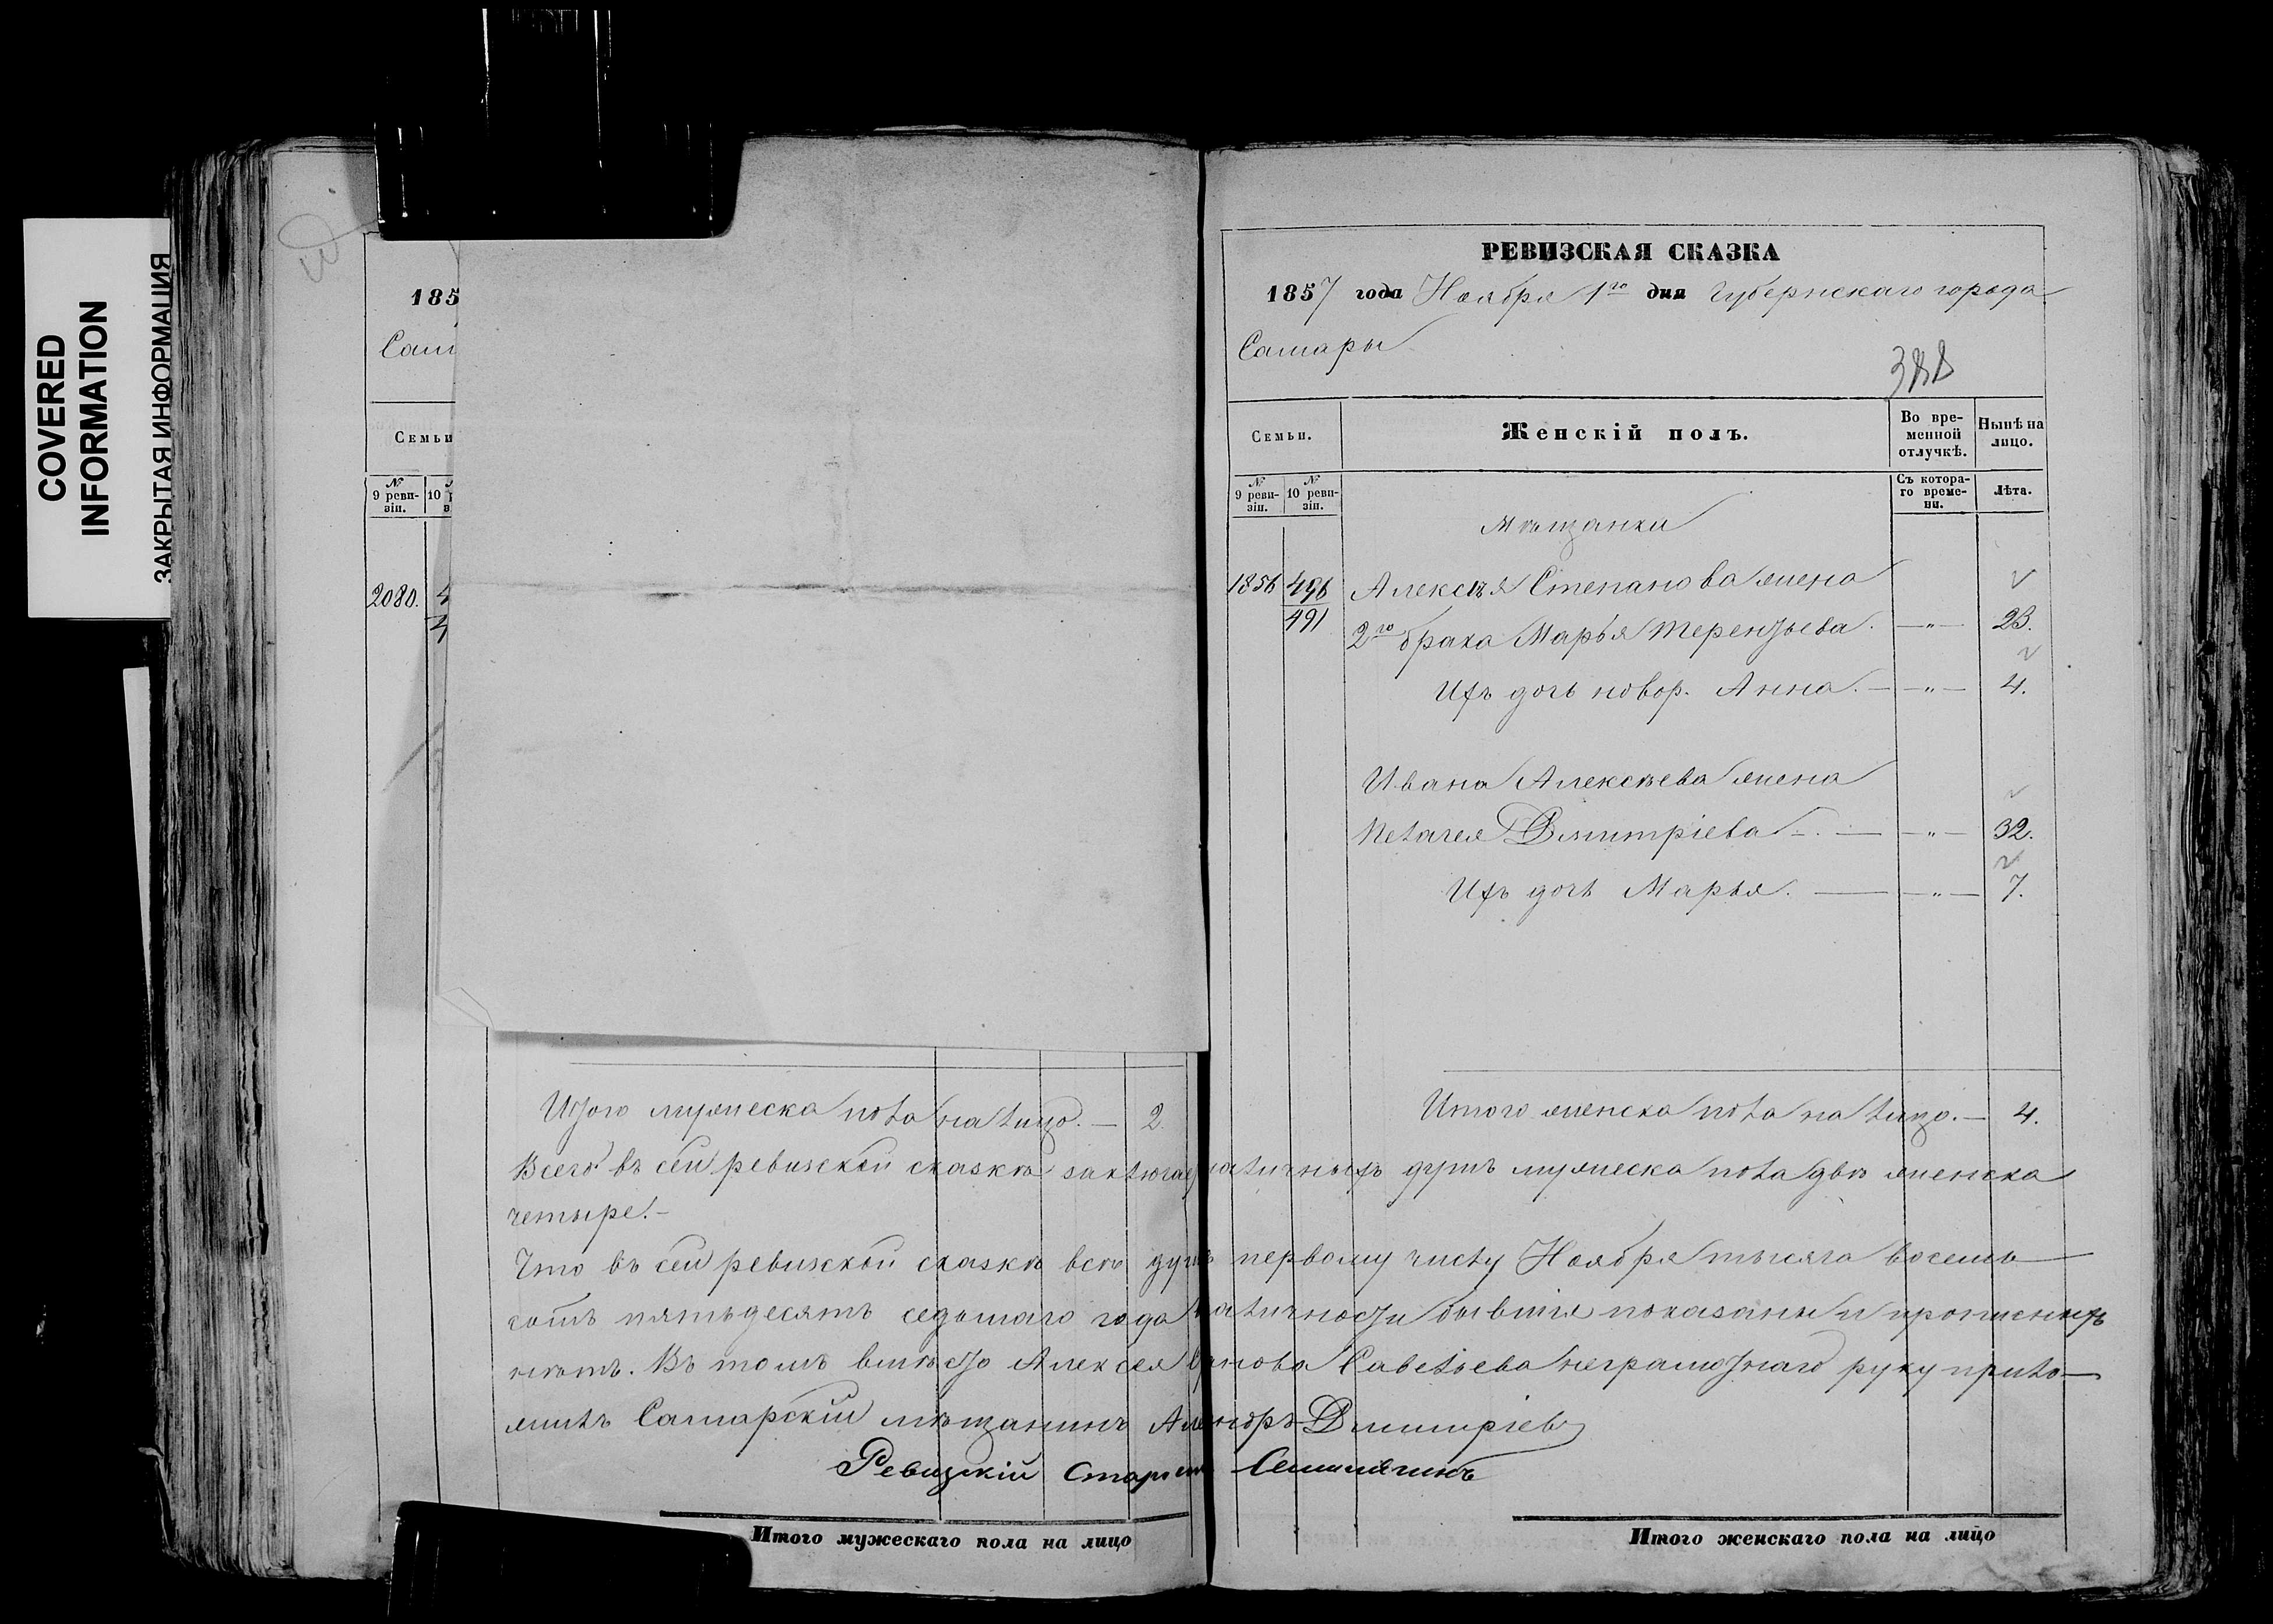 COVERED
INFORMATION
ЗАКРЫТАЯ ИНФОРМАЦИЯ
185
Сам
Семьи
№
9 реви-
зіи.
10
2080. 4
4
Итого мужеска пола на лицо. — 2
РЕВИЗСКАЯ СКАЗКА
1857 года Ноября 1го дня Губернскаго города
Самары
388
Семьи.
Женскій полъ.
Во вре-
менной
отлучкѣ.
Нынѣ на
лицо.
№
9 реви-
зіи.
№
10 реви-
зіи.
Съ котора-
го време-
ни.
Лѣта.
Мѣщанки
1856 496 Алексѣя Степанова жена
491 2го брака Марья Терентьева. — „ — 23.
Ихъ дочь новор. Анна. — „ — 4.
Ивана Алексѣева жена
Пелагея Дмитріева — „ — 32.
Ихъ дочь Марья. — „ — 7.
Итого женска пола на лицо. — 4.
Всего въ сей ревизской сказкѣ заключае наличныхъ душъ мужеска пола двѣ женска
четыре. —
Что въ сей ревизской сказкѣ всѣ душ первому числу Ноября тысяча восемь
сотъ пятьдесятъ седьмаго года наличности бывшія показаны и прописныхъ
нѣтъ. Въ томъ вмѣсто Алексея Савельева неграмотнаго руку прило-
жилъ Самарскій мѣщанинъ Дмитріевъ
Ревизскій Старости
Итого мужескаго пола на лицо
Итого женскаго пола на лицо